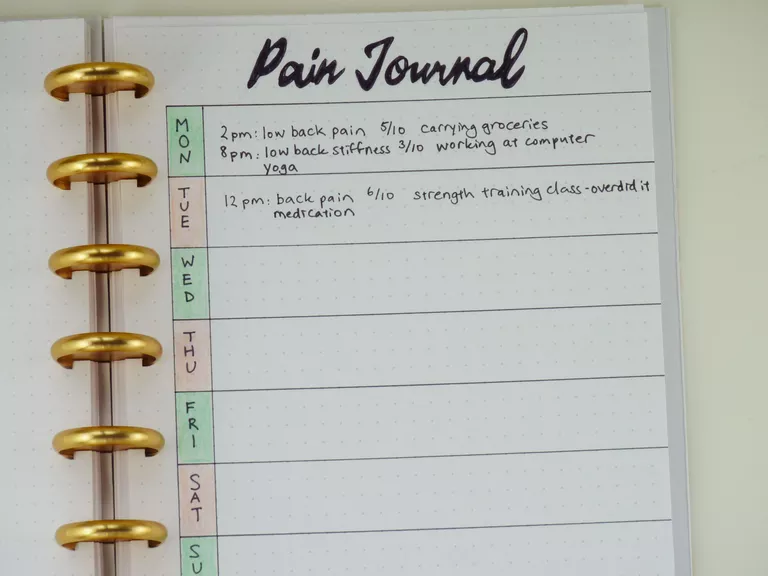 Pain Journal
MON
2pm: low back pain 5/10 carrying groceries
8pm: low back stiffness 3/10 working at computer
yoga
TUE
12pm: back pain 6/10 strength training class - overdid it
medication
WED
THU
FRI
SAT
SU